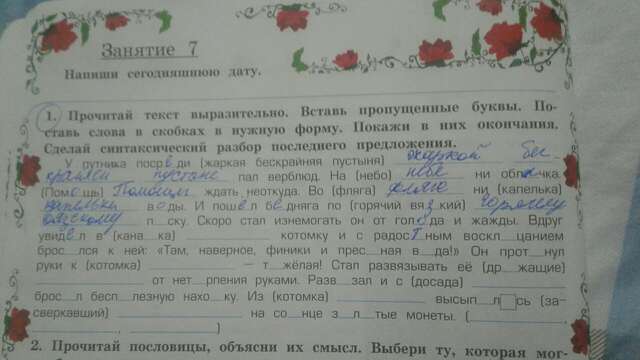 Занятие 7
Напиши сегодняшнюю дату.
1. Прочитай текст выразительно. Вставь пропущенные буквы. По-
ставь слова в скобках в нужную форму. Покажи в них окончания.
Сделай синтаксический разбор последнего предложения.
У путника посреди (жаркая бескрайняя пустыня) жаркой бес-
крайней пустыне пал верблюд. На (небо) небе ни обла чка.
(Помощь) Помощи ждать неоткуда. Во (фляга) фляге ни (капелька)
капельки воды. И пошёл бедняга по (горячий вязкий) горячему
вязкому п__ску. Скоро стал изнемогать он от голода и жажды. Вдруг
увидел в (кана__ка) котомку и с радостным воскл__цанием
брос__лся к ней: «Там, наверное, финики и прес__ная в__да!» Он прот__нул
руки к (котомка) — т__жёлая! Стал развязывать её (др__жащие)
от нет__рпения руками. Разв__зал и с (досада)
брос__л бесп__лезную нахо__ку. Из (котомка) высып__л__сь (за-
сверкавший) на со__нце з__л__тые монеты. (
, )
2. Прочитай пословицы, объясни их смысл. Выбери ту, которая мог-